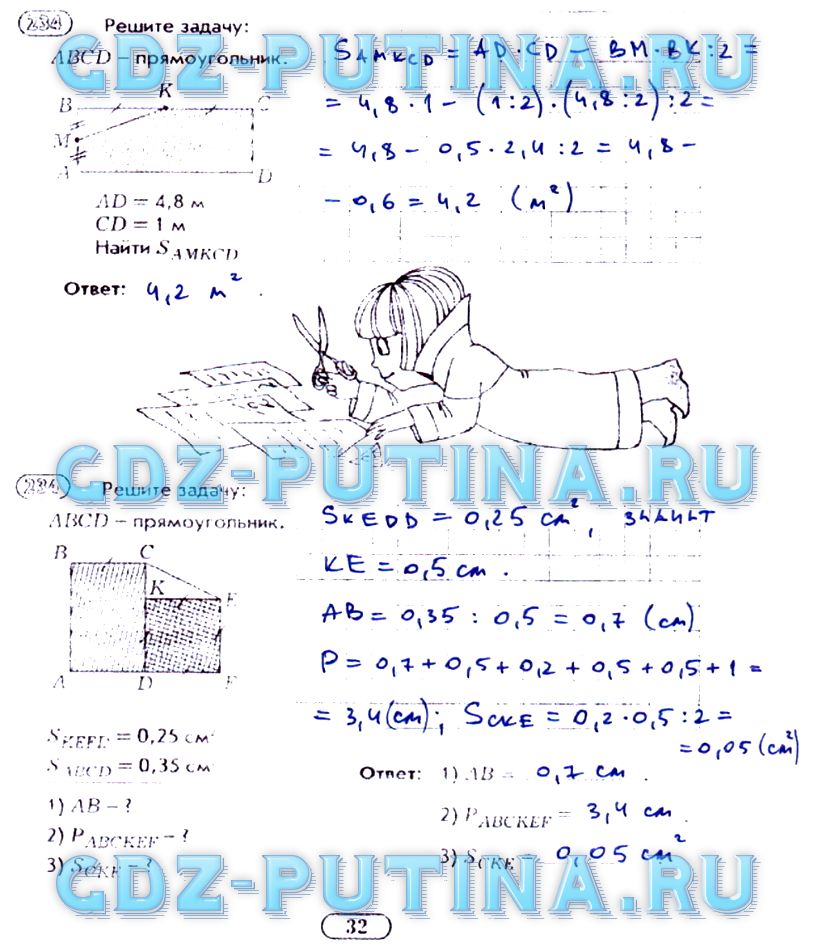 Решите задачу:
ABCD – прямоугольник.
B K C
M
A D
AD = 4,8 м
CD = 1 м
Найти S AMKCD
Ответ: 4,2 м² .
S AMKCD = AD · CD – BM · BK : 2 =
= 4,8 · 1 – (1:2) · (4,8 : 2) : 2 =
= 4,8 – 0,5 · 2,4 : 2 = 4,8 –
– 0,6 = 4,2 (м²)
GDZ-PUTINA.RU
GDZ-PUTINA.RU
Решите задачу:
ABCD – прямоугольник.
B C
K E
A D F
S KEFD = 0,25 см²
S ABCD = 0,35 см²
1) AB – ?
2) P ABCKEF – ?
3) S CKE – ?
S KEDD = 0,25 см², значит
KE = 0,5 см .
AB = 0,35 : 0,5 = 0,7 (см)
P = 0,7 + 0,5 + 0,2 + 0,5 + 0,5 + 1 =
= 3,4 (см); S CKE = 0,2 · 0,5 : 2 =
= 0,05 (см²)
Ответ: 1) AB = 0,7 см .
2) P ABCKEF = 3,4 см .
3) S CKE = 0,05 см²
GDZ-PUTINA.RU
32